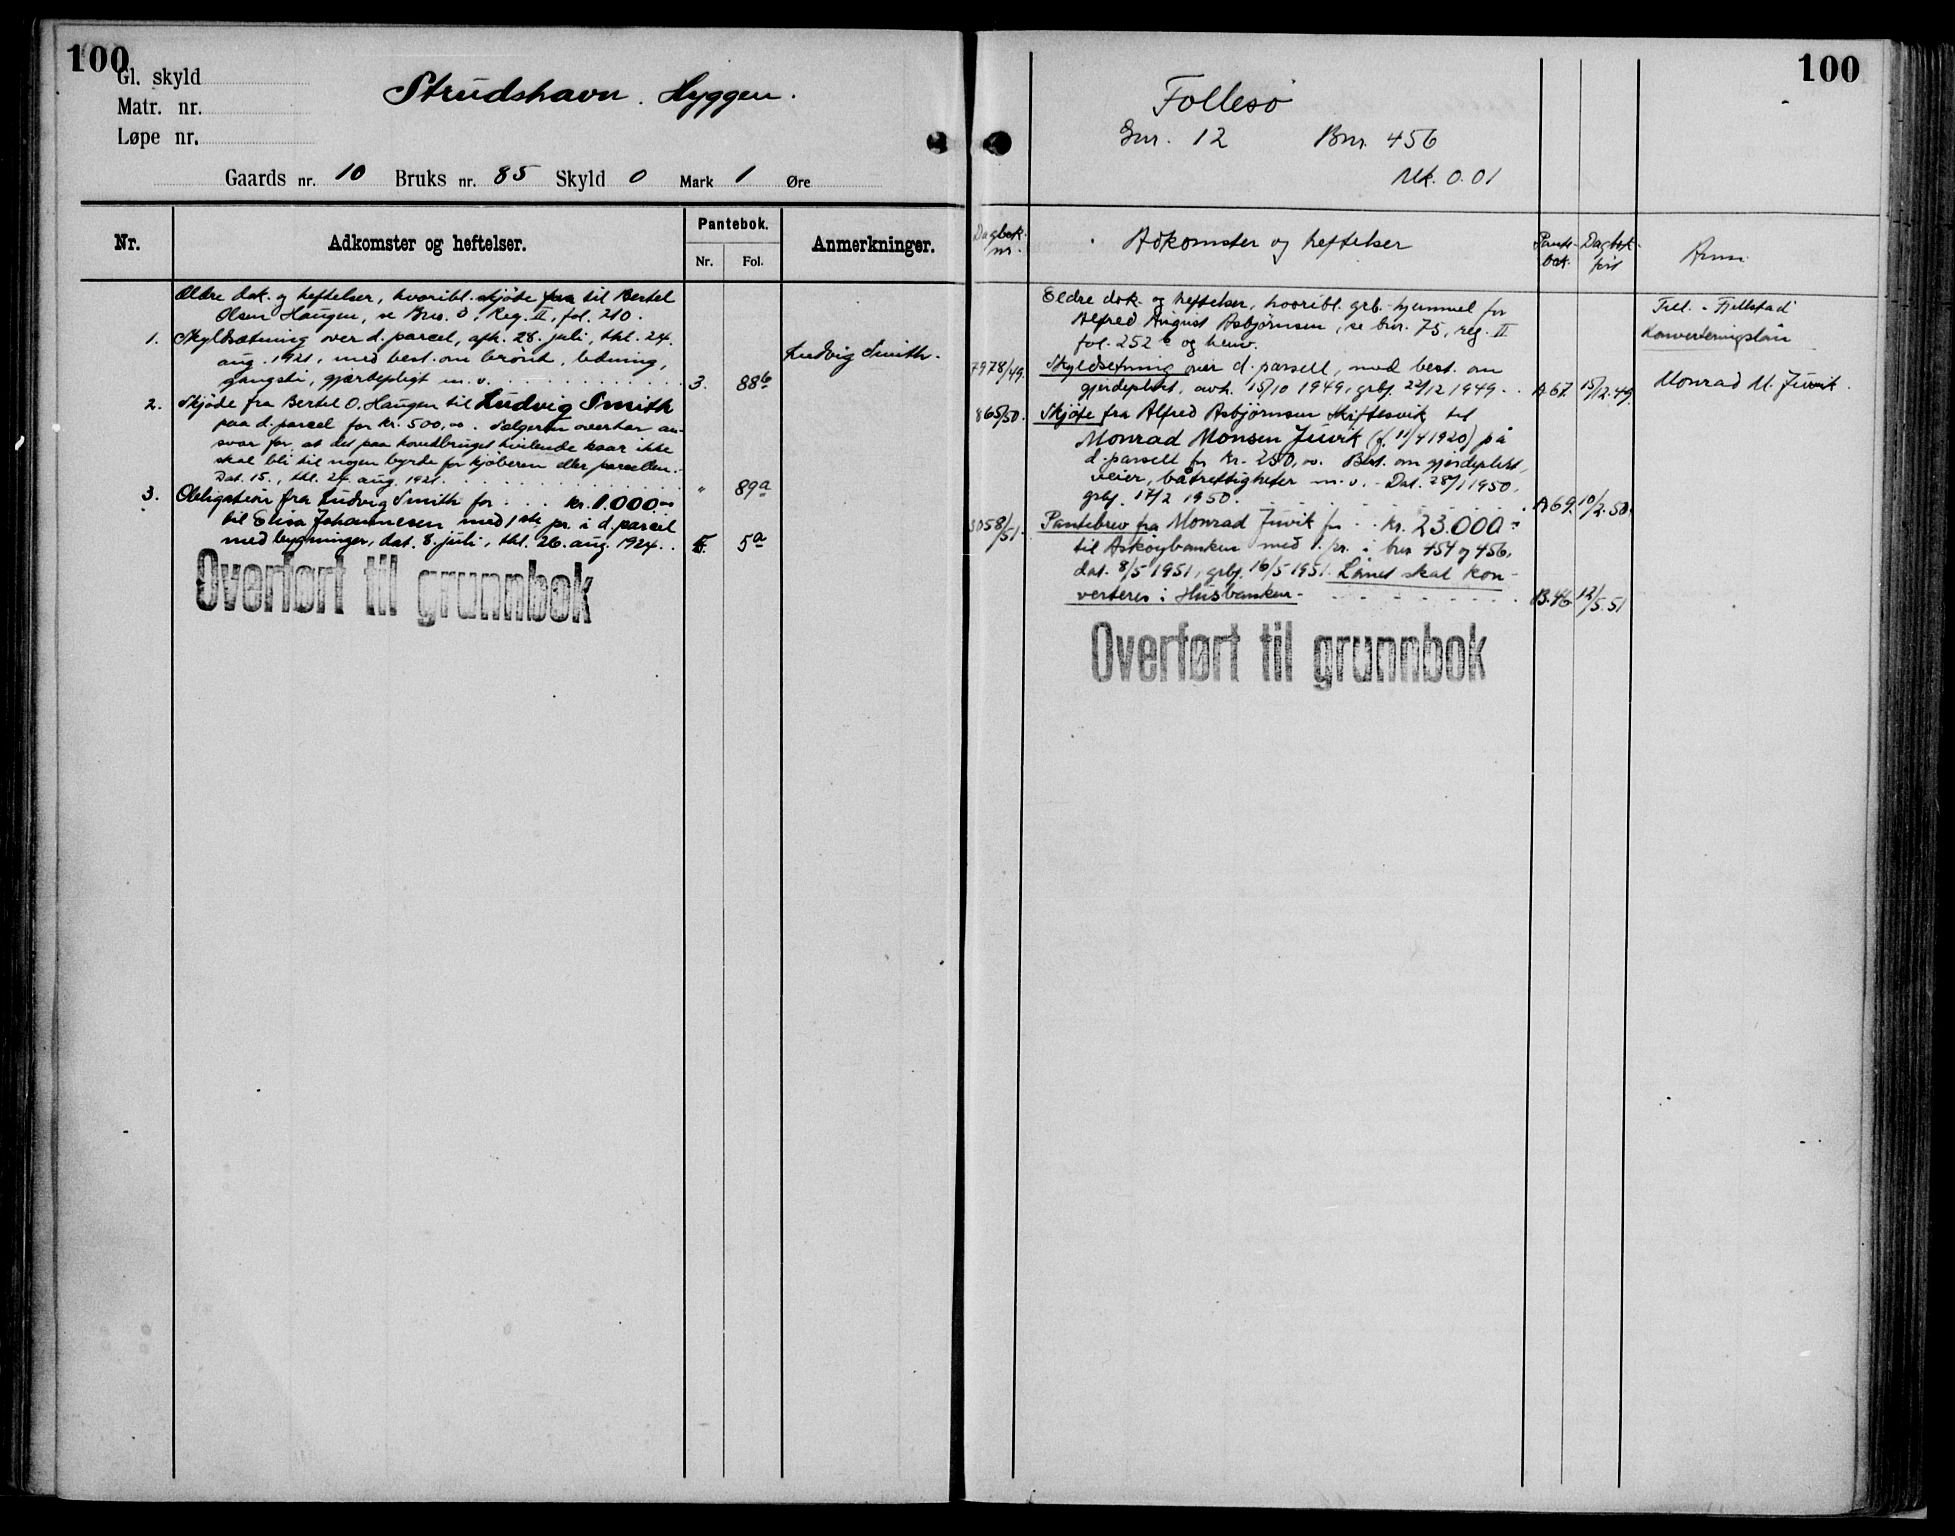 100
Gl. skyld
Matr. nr.
Løpe nr.
Strudshavn. Hyggen.
Gaards nr. 10 Bruks nr. 85 Skyld 0 Mark 1 Øre
Nr.
Adkomster og heftelser.
Pantebok.
Nr. Fol.
Anmerkninger.
Ældre dok. og heftelser, hvoribl. skjöte til Bertel
Olsen Haugen, se Bno. 3, Reg. II, fol. 210.
1. Skyldsætning over d. parcel, afh. 28. juli, thl. 24.
aug. 1921, med best. om brönd, ledning,
gangsti, gjærdepligt m. v. 3. 88b
Ludvig Smith.
2. Skjöde fra Bertel O. Haugen til Ludvig Smith
paa d. parcel for kr. 500,00. Sælgeren overtar an-
svar for at det paa hovedbruget hvilende kaar ikke
skal bli til nogen byrde for kjöberen eller parcellen.
Dat. 15., thl. 24. aug. 1921. " 89a
3. Obligation fra Ludvig Smith for kr. 1.000.00
til Elisa Johannesen med 1ste pr. i d. parcel
med bygninger, dat. 8. juli, thl. 26. aug. 1924. 5. 5a
Overført til grunnbok
100
Follesö
Gnr. 12 Bnr. 456
Mk. 0.01
Dagbok-
nr.
Adkomster og heftelser
Pante-
bok.
Dagbok-
ført
Anm.
Eldre dok. og heftelser, hvoribl. grb. hjemmel for
Alfred August Asbjørnsen, se bnr. 75, reg. II
fol. 252 b og henv.
Tel. - Fjellstad
Konverteringslån
7978/49. Skyldsetning over d. parsell, med best. om
gjerdeplikt, avh. 15/10 1949, grbf. 22/12 1949. A 67. 15/12.49.
Monrad M. Juvik.
865/50. Skjøte fra Alfred Asbjørnsen Skiftesvik til
Monrad Monsen Juvik (f. 11/4 1920) på
d. parsell for kr. 250,00. Best. om gjerdeplikt,
veier, båtrettigheter m. v. - Dat. 28/1 1950,
grbf. 17/2 1950. A 69. 10/2.50.
3058/51. Pantebrev fra Monrad Juvik for kr. 23.000
til Askøybanken med 1. pr. i bnr 454 og 456,
dat. 8/5 1951, grbf. 16/5 1951. Lånet skal kon-
verteres i Husbanken. B. 46 12/5.51
Overført til grunnbok